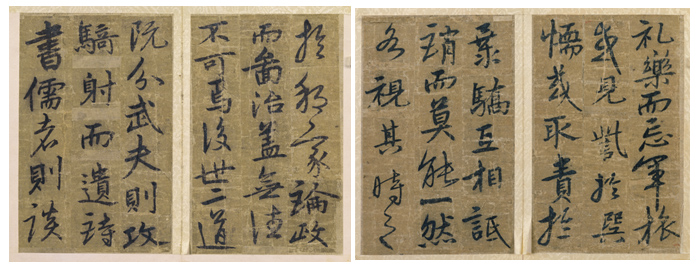 於邦家論政
而啚治蓋無往
不可焉後世二道
既分武夫則攻
騎射而遺詩
書儒者則談
礼樂而忘軍旅
或見訾於巽
懦或取責於
驕互相詆
誚而莫能一然
各視其時之